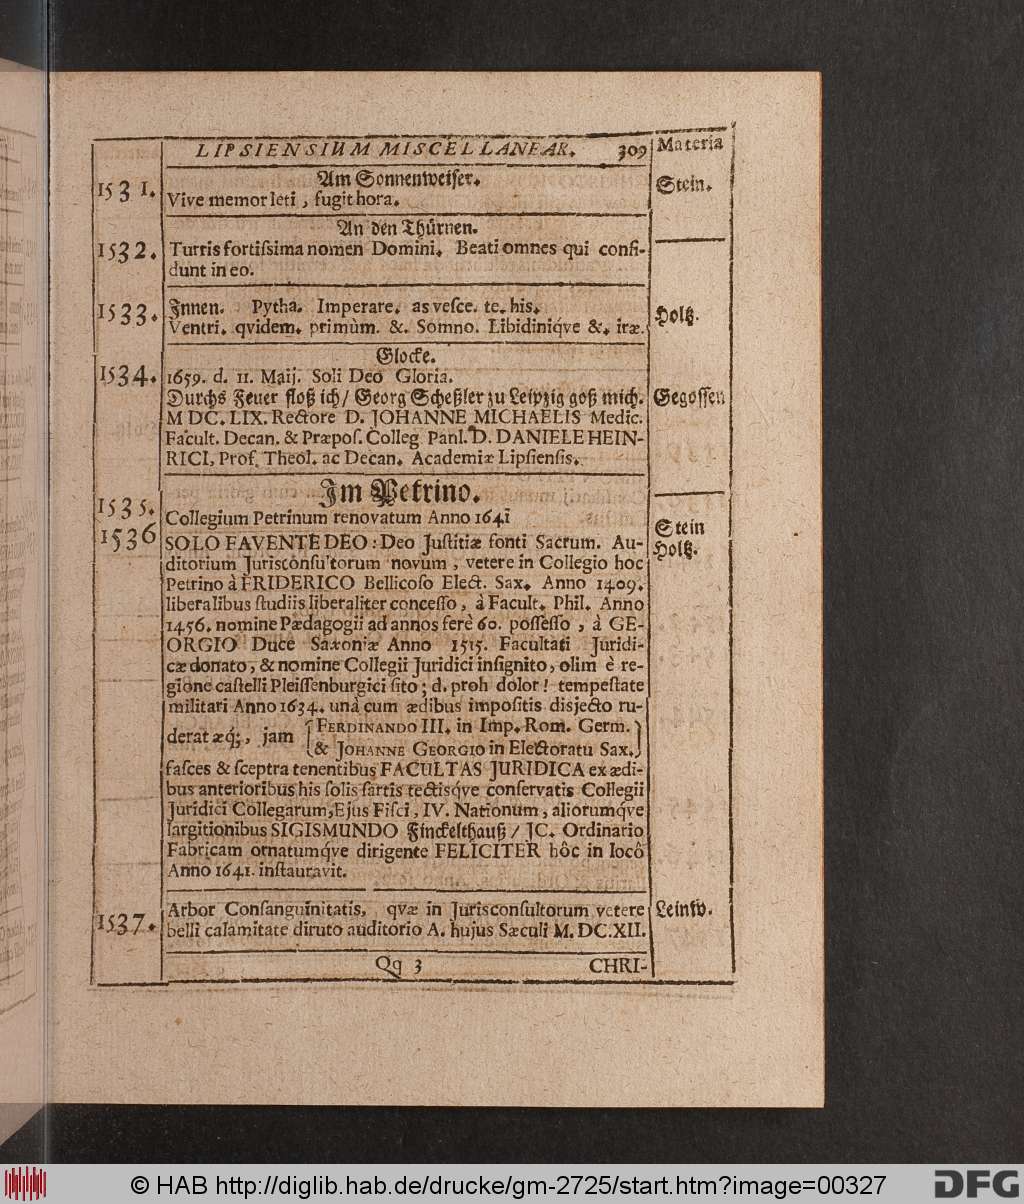 LIPSIENSIUM MISCELLANEAR. 309 Materia
Am Sonnenweiser.
1531. Vive memor leti, fugit hora. Stein.
An den Thürnen.
1532. Turris fortiſsima nomen Domini. Beati omnes qui confi-
dunt in eo.
1533. Innen. Pytha. Imperare. as veſce. te. his. Holtz.
Ventri. qvidem. primùm. &. Somno. Libidiniq́ve &. iræ.
Glocke.
1534. 1659. d. 11. Maij. Soli Deo Gloria.
Durchs Feuer floß ich/ Georg Scheßler zu Leipzig goß mich. Gegoſſen
M DC. LIX. Rectore D. JOHANNE MICHAELIS Medic.
Facult. Decan. & Præpoſ. Colleg Panl. D. DANIELE HEIN-
RICI, Prof. Theol. ac Decan. Academiæ Lipſienſis.
Im Petrino.
1535. Collegium Petrinum renovatum Anno 1641 Stein
1536 SOLO FAVENTE DEO: Deo Juſtitiæ fonti Sacrum. Au- Holtz.
ditorium Jurisconſultorum novum, vetere in Collegio hoc
Petrino à FRIDERICO Bellicoſo Elect. Sax. Anno 1409.
liberalibus ſtudiis liberaliter conceſſo, à Facult. Phil. Anno
1456. nomine Pædagogii ad annos ferè 60. poſſeſſo, à GE-
ORGIO Duce Saxoniæ Anno 1515. Facultati Juridi-
cæ donato, & nomine Collegii Juridici inſignito, olim è re-
gione caſtelli Pleiſſenburgici ſito; d. proh dolor! tempeſtate
militari Anno 1634. unà cum ædibus impoſitis disjecto ru-
deratæq́;, jam { FERDINANDO III. in Imp. Rom. Germ. }
& JOHANNE GEORGIO in Electoratu Sax.
faſces & ſceptra tenentibus FACULTAS JURIDICA ex ædi-
bus anterioribus his ſolis ſartis tectisq́ve conſervatis Collegii
Juridici Collegarum, Ejus Fiſci, IV. Nationum, aliorumq́ve
largitionibus SIGISMUNDO Finckelthauß/ JC. Ordinario
Fabricam ornatumq́ve dirigente FELICITER hôc in locô
Anno 1641. inſtauravit.
1537. Arbor Conſanguinitatis, qvæ in Jurisconſultorum vetere Leinw.
belli calamitate diruto auditorio A. hujus Sæculi M. DC. XII.
Qq 3 CHRI-
© HAB http://diglib.hab.de/drucke/gm-2725/start.htm?image=00327
DFG